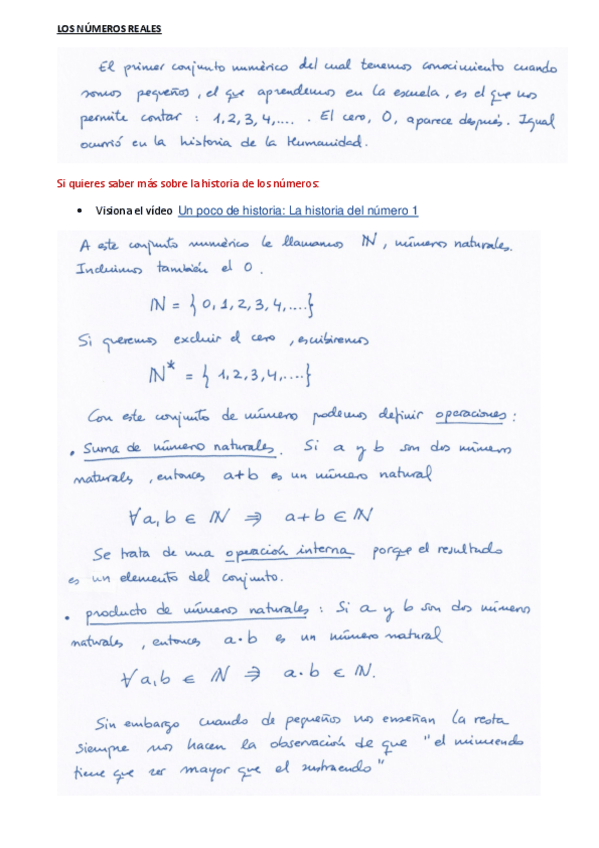 LOS NÚMEROS REALES
El primer conjunto numérico del cual tenemos conocimiento cuando
somos pequeños, el que aprendemos en la escuela, es el que nos
permite contar : 1,2,3,4,.... . El cero, 0, aparece después. Igual
ocurrió en la historia de la Humanidad.
Si quieres saber más sobre la historia de los números:
• Visiona el vídeo Un poco de historia: La historia del número 1
A este conjunto numérico le llamamos ℕ, números naturales.
Incluimos también el 0.
ℕ = { 0,1,2,3,4,....}
Si queremos excluir el cero, escribiremos
ℕ* = { 1,2,3,4,....}
Con este conjunto de número podemos definir operaciones :
• Suma de número naturales. Si a y b son dos números
naturales, entonces a+b es un número natural
∀a,b ∈ ℕ ⇒ a+b ∈ ℕ
Se trata de una operación interna porque el resultado
es un elemento del conjunto.
• producto de números naturales : Si a y b son dos números
naturales, entonces a·b es un número natural
∀a,b ∈ ℕ ⇒ a·b ∈ ℕ.
Sin embargo cuando de pequeños nos enseñan la resta
siempre nos hacen la observación de que "el minuendo
tiene que ser mayor que el sustraendo"